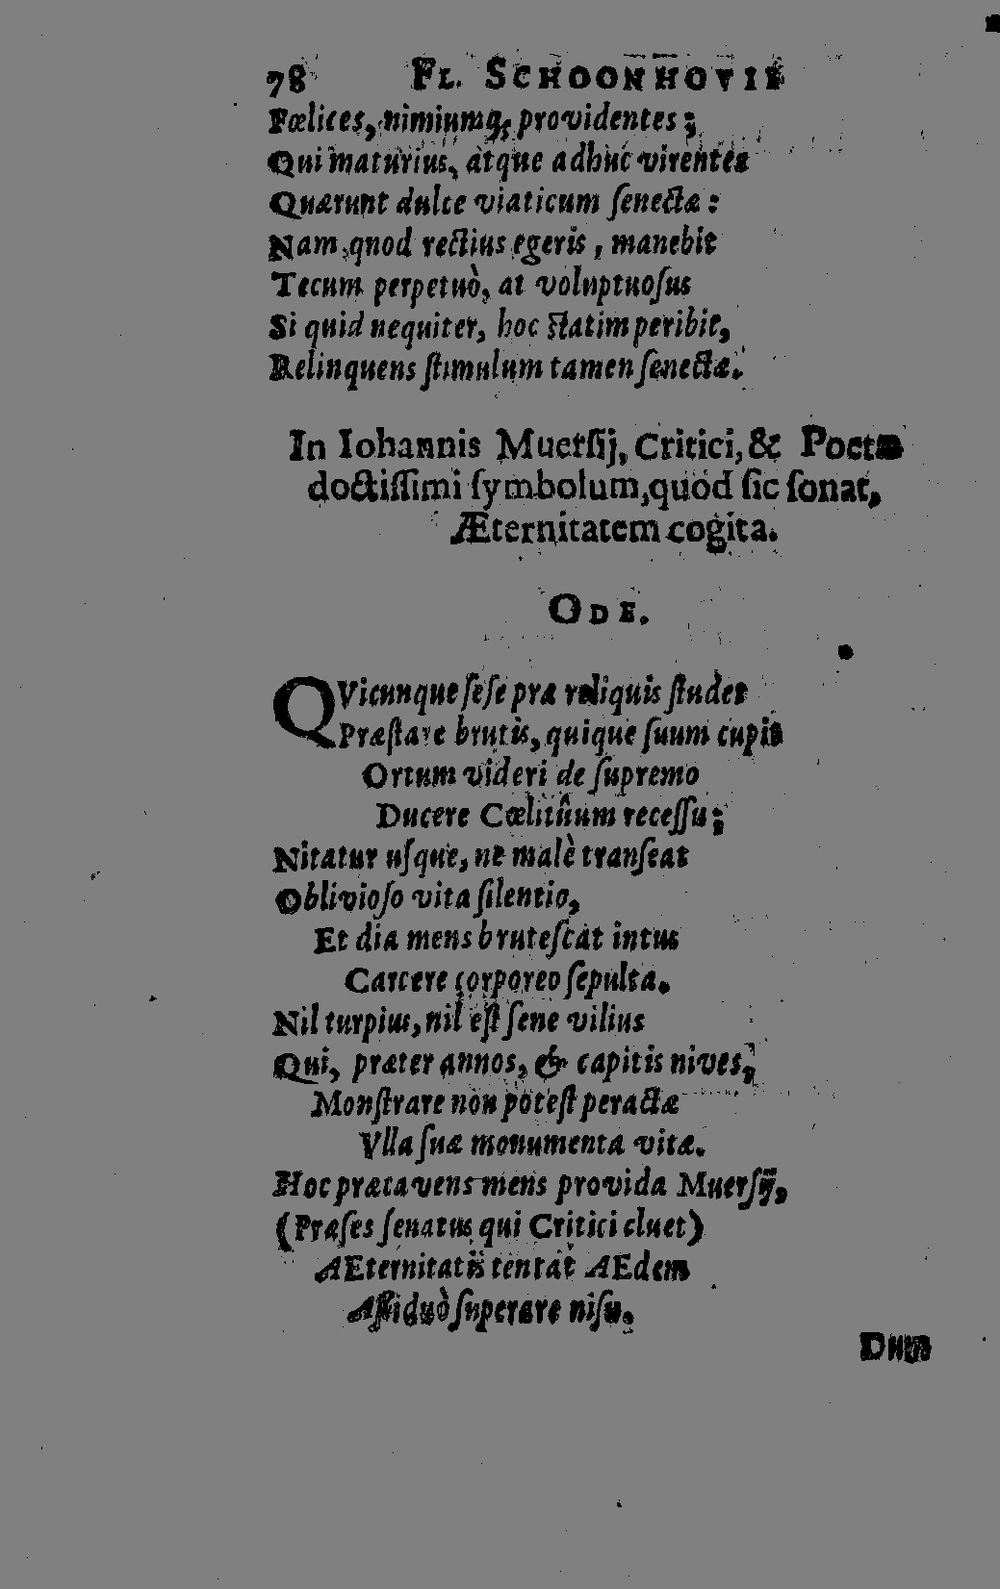 78 FL. SCHOONHOVII
Fœlices, nimiumq; providentes;
Qui maturius, atque adhuc virentes
Quærunt dulce viaticum ſenectæ:
Nam quod rectius egeris, manebit
Tecum perpetuò, at voluptuoſus
Si quid nequiter, hoc ſtatim peribit,
Relinquens ſtimulum tamen ſenectæ.
In Iohannis Muerſij, Critici, & Poetæ
doctiſſimi ſymbolum, quod ſic ſonat,
Æternitatem cogita.
ODE.
QVicunque ſeſe præ reliquis ſtudet
Præſtare brutis, quique ſuum cupit
Ortum videri de ſupremo
Ducere Cœlitûum receſſu;
Nitatur uſque, ne malè tranſeat
Oblivioſo vita ſilentio,
Et dia mens bruteſcat intus
Carcere corporeo ſepulta.
Nil turpius, nil eſt ſene vilius
Qui, præter annos, & capitis nives,
Monſtrare non poteſt peractæ
Vlla ſuæ monumenta vitæ.
Hoc præcavens mens provida Muerſij,
(Præſes ſenatus qui Critici cluet)
AEternitatis tentat AEdem
Aſſiduò ſuperare niſu.
Dum